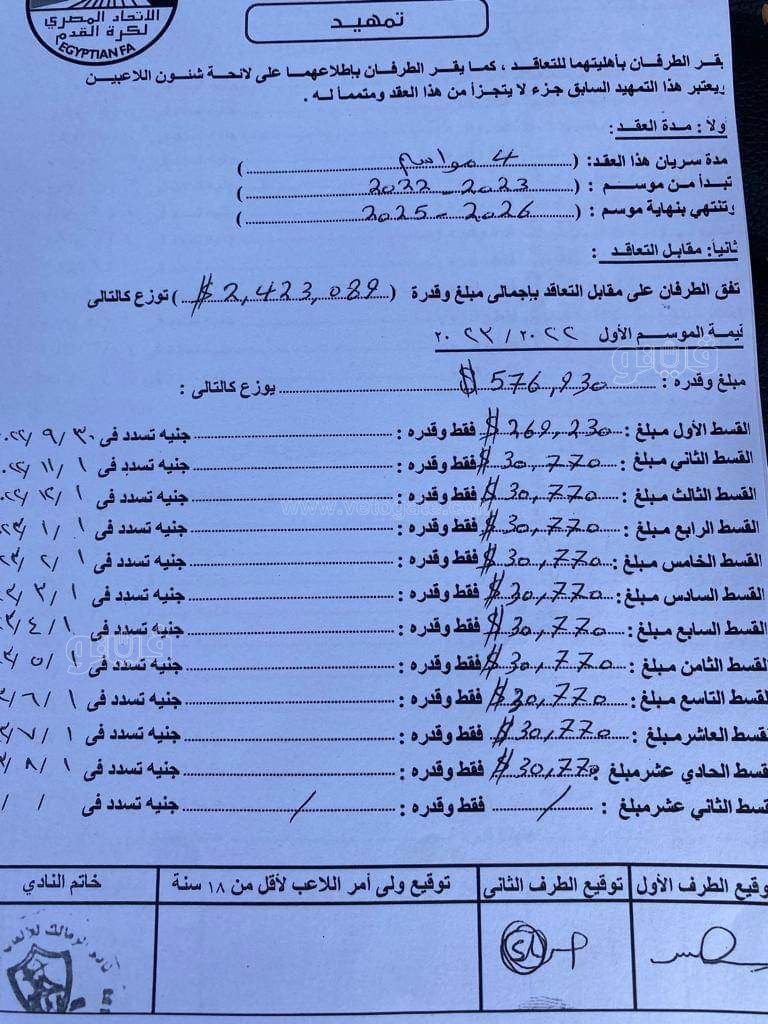 الاتحاد المصري
لكرة القدم
EGYPTIAN FA
تمهيد
يقر الطرفان بأهليتهما للتعاقد ، كما يقر الطرفان بإطلاعهما على لائحة شئون اللاعبين
ويعتبر هذا التمهيد السابق جزء لا يتجزأ من هذا العقد ومتمماً له .
ولاً : مدة العقد :
مدة سريان هذا العقد: ( 4 مواسم )
تبدأ من موسم : ( 2022 - 2023 )
وتنتهي بنهاية موسم : ( 2025 - 2026 )
ثانياً: مقابل التعاقد :
تفق الطرفان على مقابل التعاقد بإجمالى مبلغ وقدرة ( $ 2,423,089 ) توزع كالتالى
قيمة الموسم الأول ٢٠٢٢ / ٢٠٢٣
مبلغ وقدره : $ 576,930 يوزع كالتالى :
القسط الأول مبلغ : $ 269,230 فقط وقدره : جنيه تسدد فى ٣٠ / ٩ /
القسط الثاني مبلغ : $ 30,770 فقط وقدره : جنيه تسدد فى ١ / ١١ /
القسط الثالث مبلغ : $ 30,770 فقط وقدره : جنيه تسدد فى ١ / ١٢ /
القسط الرابع مبلغ : $ 30,770 فقط وقدره : جنيه تسدد فى ١ / ١ /
القسط الخامس مبلغ : $ 30,770 فقط وقدره : جنيه تسدد فى ١ / ٢ /
القسط السادس مبلغ : $ 30,770 فقط وقدره : جنيه تسدد فى ١ / ٣ /
القسط السابع مبلغ : $ 30,770 فقط وقدره : جنيه تسدد فى ١ / ٤ /
القسط الثامن مبلغ : $ 30,770 فقط وقدره : جنيه تسدد فى ١ / ٥ /
القسط التاسع مبلغ : $ 30,770 فقط وقدره : جنيه تسدد فى ١ / ٦ /
القسط العاشر مبلغ : $ 30,770 فقط وقدره : جنيه تسدد فى ١ / ٧ /
قسط الحادي عشر مبلغ : $ 30,770 فقط وقدره : جنيه تسدد فى ١ / ٨ /
قسط الثاني عشر مبلغ : / فقط وقدره : / جنيه تسدد فى / /
وقيع الطرف الأول توقيع الطرف الثانى توقيع ولى أمر اللاعب لأقل من ١٨ سنة خاتم النادي
نادى الزمالك للألعاب
فيتو
www.vetogate.com
فيتو